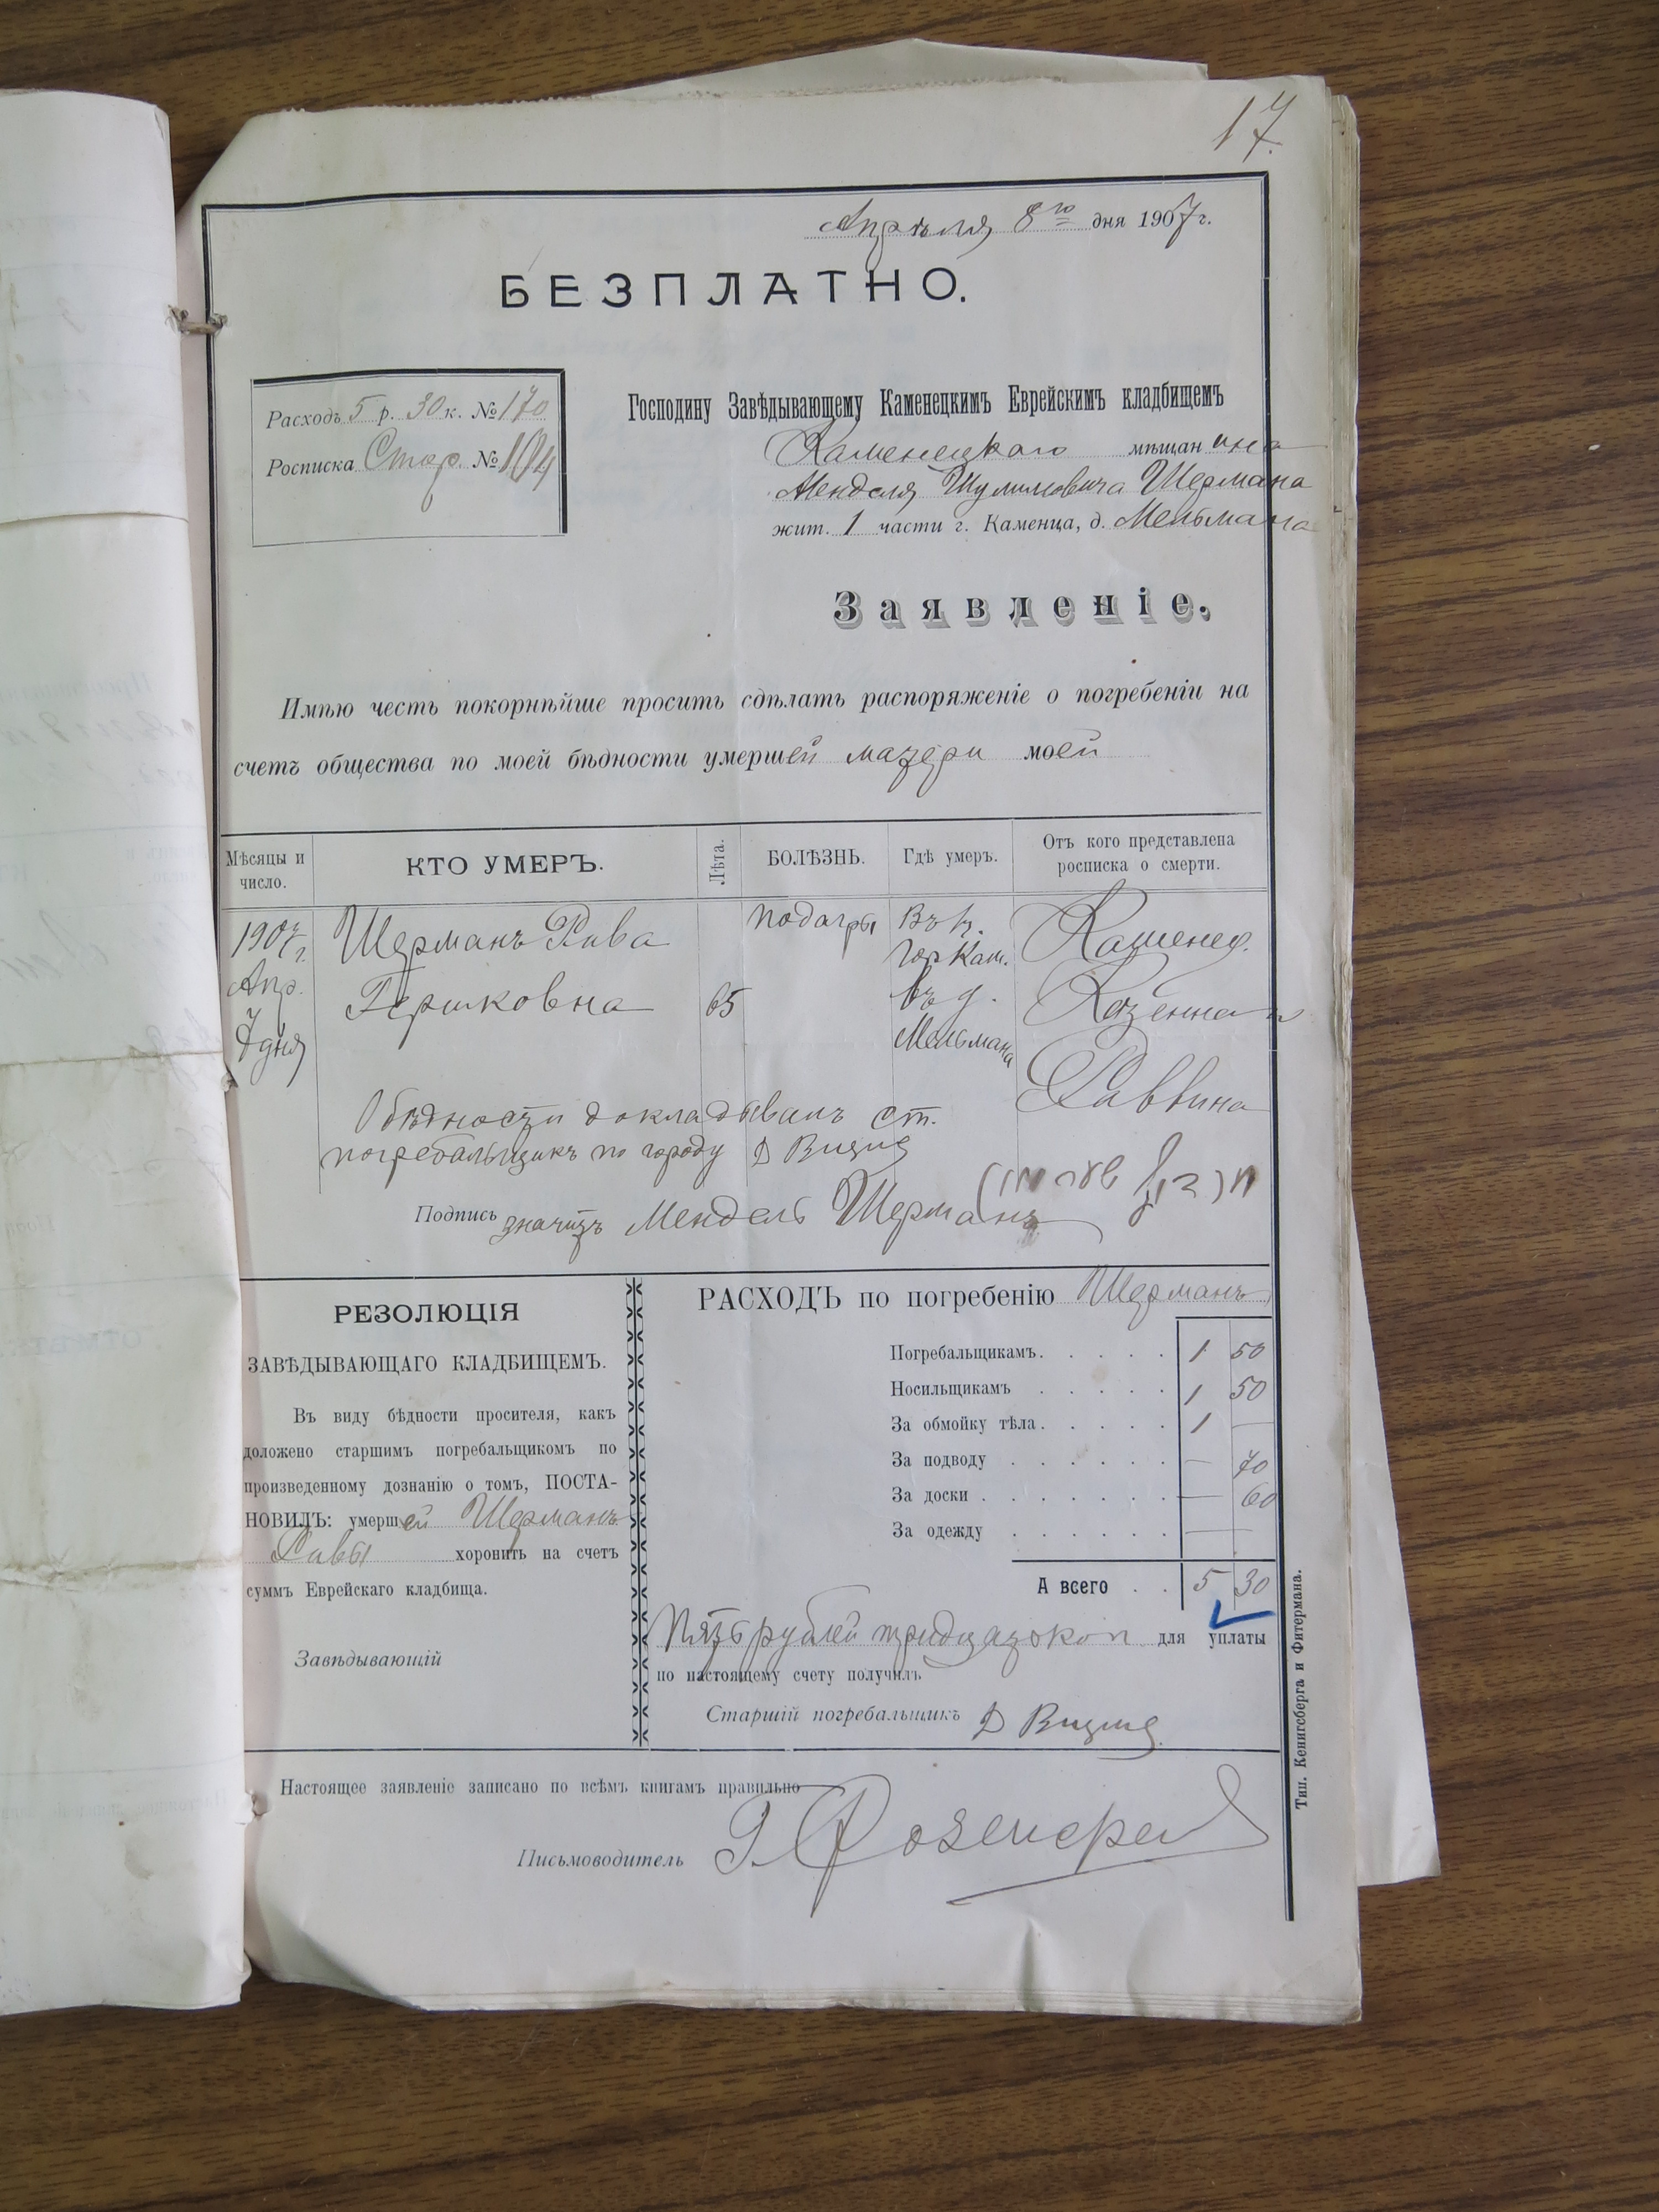 17.
Апрѣля 8го дня 1907 г.
БЕЗПЛАТНО.
Расходъ 5 р. 30 к. № 170
Росписка Стар. № 104
Господину Завѣдывающему Каменецкимъ Еврейскимъ кладбищемъ
Каменецкаго мѣщанина
Менделя Шулимовича Шермана
жит. 1 части г. Каменца, д. Мельмана
Заявленіе.
Имѣю честь покорнѣйше просить сдѣлать распоряженіе о погребеніи на
счетъ общества по моей бѣдности умершей матери моей
Мѣсяцы и число.
КТО УМЕРЪ.
Лѣта.
БОЛѢЗНЬ.
Гдѣ умеръ.
Отъ кого представлена росписка о смерти.
1907 г.
Апр.
7 дня
Шерманъ Рива
Гершковна
65
подагры
Въ
гор Кам.
въ д.
Мельмана
Каменец.
Казеннаго
Раввина
О бѣдности докладывалъ ст.
погребальщикъ по городу Д
Подпись значитъ Мендель Шерманъ
РЕЗОЛЮЦІЯ
ЗАВѢДЫВАЮЩАГО КЛАДБИЩЕМЪ.
Въ виду бѣдности просителя, какъ
доложено старшимъ погребальщикомъ по
произведенному дознанію о томъ, ПОСТА-
НОВИЛЪ: умершей Шерманъ
Ривы хоронить на счетъ
суммъ Еврейскаго кладбища.
Завѣдывающій
РАСХОДЪ по погребенію Шерманъ
Погребальщикамъ. . . . . . 1 50
Носильщикамъ . . . . . 1 50
За обмойку тѣла. . . . . . 1 —
За подводу . . . . . . — 70
За доски . . . . . . . — 60
За одежду . . . . . . — —
А всего . . 5 30
Пять рублей тридцать коп для уплаты
по настоящему счету получилъ
Старшій погребальщикъ Д
Настоящее заявленіе записано по всѣмъ книгамъ правильно
Письмоводитель
Тип. Кенигсберга и Фитермана.